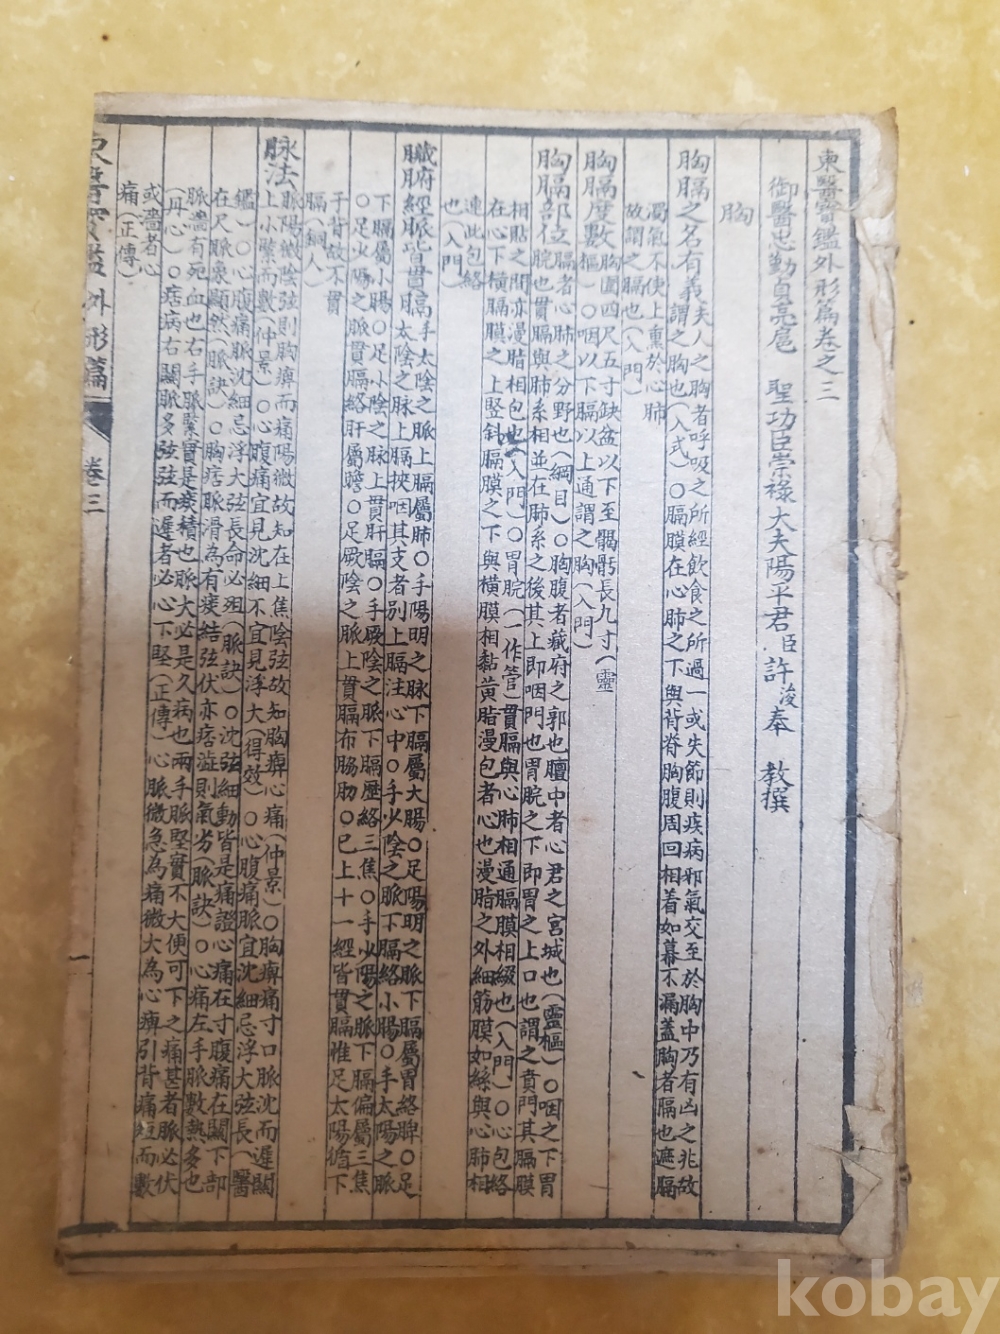 東醫寶鑑外形篇卷之三
御醫忠勤貞亮扈 聖功臣崇祿大夫陽平君臣許浚奉 教撰
胸
胸膈之名有義夫人之胸者呼吸之所經飲食之所過一或失節則疾病邪氣交至於胸中乃有凶之兆故
謂之胸也(入式)○膈膜在心肺之下與背脊胸腹周回相着如幕不漏蓋胸者膈也遮膈
濁氣不使上熏於心肺
故謂之膈也(入門)
胸膈度數胸圍四尺五寸缺盆以下至𩩲骬長九寸(靈
樞)○咽以下膈以上通謂之胸(入門)
胸膈部位膈者心肺之分野也(綱目)○胸腹者藏府之郭也膻中者心君之宮城也(靈樞)○咽之下胃
脘也貫膈與肺系相並在肺系之後其上即咽門也胃脘之下即胃之上口也謂之賁門其膈膜
相貼之間亦漫脂相包也(入門)○胃脘(一作管)貫膈與心肺相通膈膜相綴也(入門)○心包絡
在心下橫膈膜之上竪斜膈膜之下與橫膜相黏黃脂漫包者心也漫脂之外細筋膜如絲與心肺相
連此包絡
也(入門)
臟腑經脈皆貫膈手太陰之脈上膈屬肺○手陽明之脉下膈屬大腸○足陽明之脈下膈屬胃絡脾○足
太陰之脉上膈挾咽其支者別上膈注心中○手少陰之脈下膈絡小腸○手太陽之脈
下膈屬小腸○足少陰之脉上貫肝膈○手厥陰之脈下膈歷絡三焦○手少陽之脈下膈徧屬三焦
○足少陽之脈貫膈絡肝屬膽○足厥陰之脈上貫膈布脇肋○已上十一經皆貫膈惟足太陽循下
于背故不貫
膈(銅人)
脉法脈陽微陰弦則胸痺而痛陽微故知在上焦陰弦故知胸痺心痛(仲景)○胸痺痛寸口脈沈而遲關
上小緊而數(仲景)○心腹痛宜見沈細不宜見浮大(得效)○心腹痛脈宜沈細忌浮大弦長(醫
鑑)○心腹痛脈沈細忌浮大弦長命必殂(脈訣)○沈弦細動皆是痛證心痛在寸腹痛在關下部
在尺脈象顯然(脈訣)○胸痞脈滑為有痰結弦伏亦痞澁則氣劣(脈訣)○心痛左手脈數熱多也
脈濇有死血也右手脈緊實是痰積也脈大必是久病也兩手脈堅實不大便可下之痛甚者脈必伏
(丹心)○痞病右關脈多弦弦而遲者必心下堅(正傳)心脈微急為痛微大為心痺引背痛短而數
或濇者心
痛(正傳)
東醫寶鑑 外形篇 卷三 一
kobay